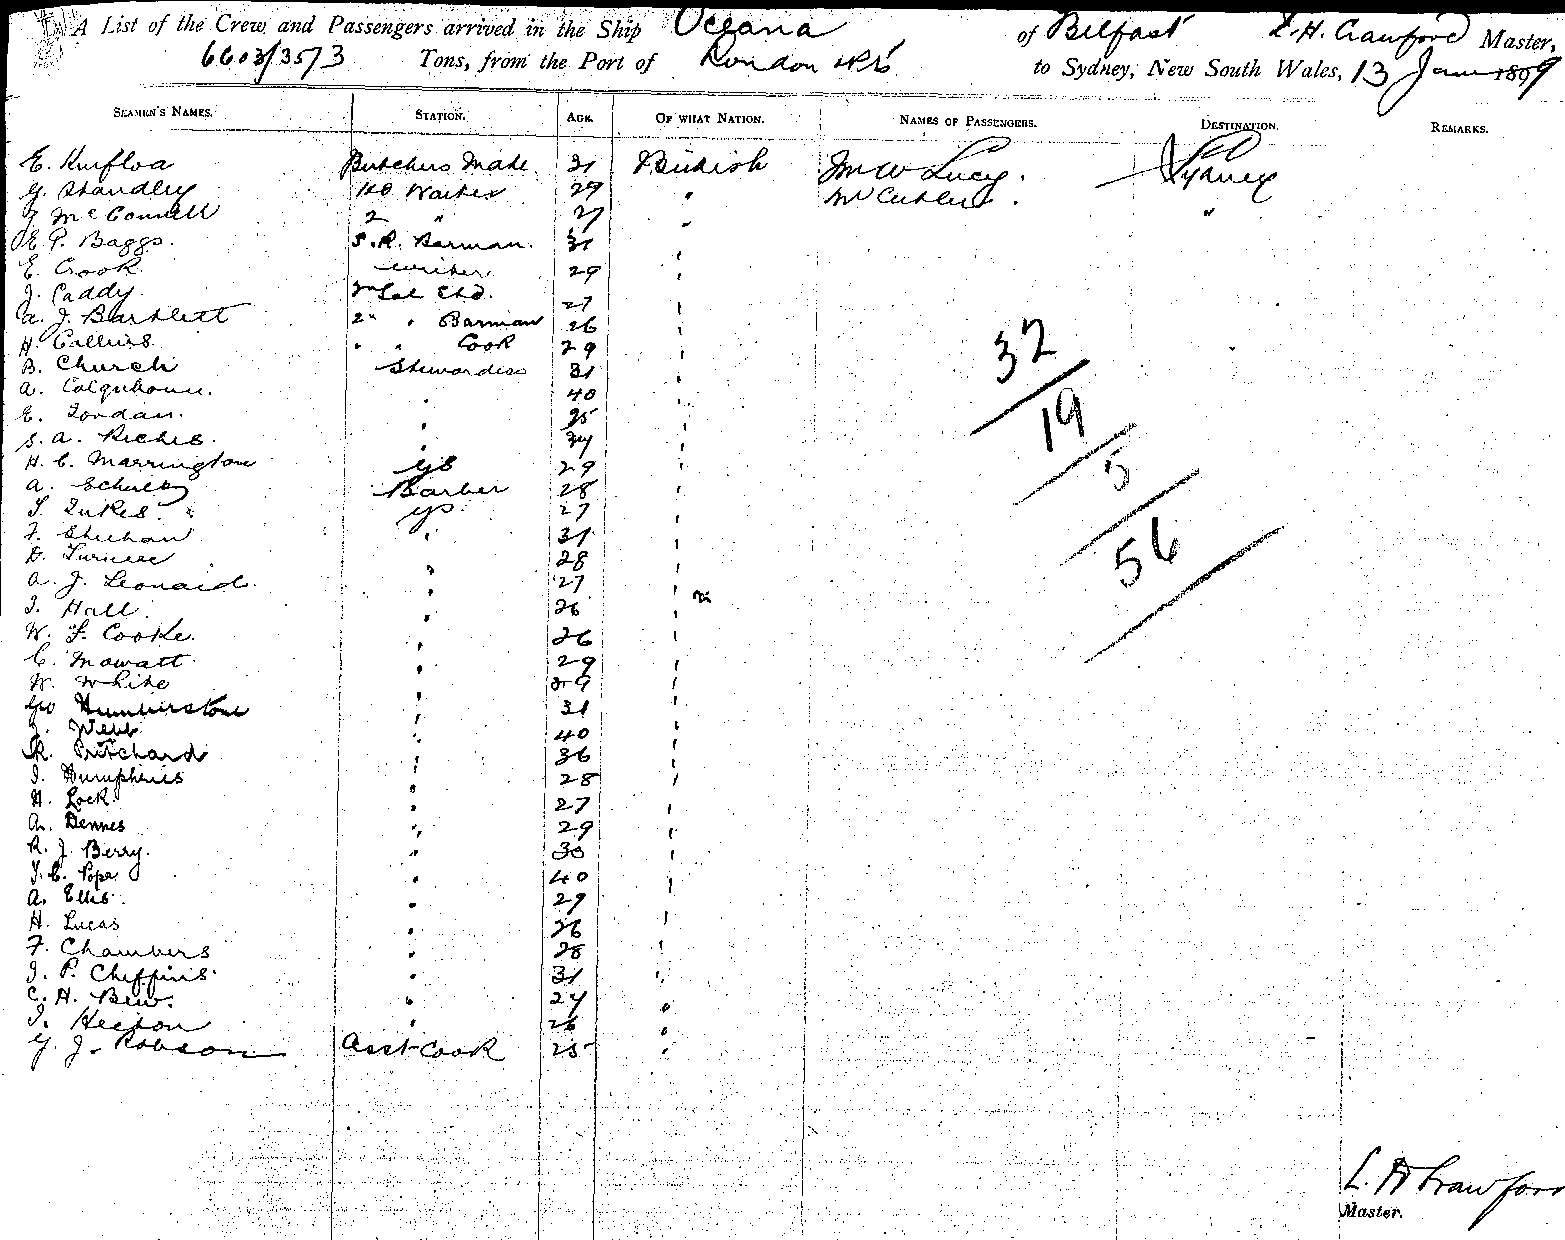 A List of the Crew and Passengers arrived in the Ship Oceana of Belfast L.H. Crawford Master,
6603/3573 Tons, from the Port of London to Sydney, New South Wales, 13 Jany 1899
SEAMEN'S NAMES. STATION. AGE. OF WHAT NATION. NAMES OF PASSENGERS. DESTINATION. REMARKS.
E. Butchers Mate. 31 British Lucy. Sydney
G. Standley Waiter 29 "
McConnell 2 " 27 "
E. P. Baggs. S. R. Barman. 31 "
E. Crook. writer. 29 "
J. Caddy. 27 "
A. J. Bartlett 2nd " Barman 26 "
H. " " Cook 29 "
B. Church Stewardess 31 "
A. Colquhoun. " 40 "
E. Jordan. " 35 "
S. A. Riches. " "
H. C. Marrington GS 29 "
A. Barber 28 "
GS 27 "
F. Sheehan " 31 "
Turner " 28 "
A. J. Leonard. " 27 "
J. Hall. " 26 "
W. F. Cooke. " 26 "
C. Mowatt. " 29 "
W. White " 29 "
Geo Humherstone " 31 "
J. Webb " 40 "
R. Pritchard " 36 "
J. Humphries " 28 "
H. Lock. " 27 "
A. Dennes " 29 "
R. J. Berry. " 30 "
C. Pope " 40 "
A. Ellis. " 29 "
H. Lucas " 26 "
F. Chambers " 28 "
J. P. Cheffins. " 31 "
C. H. Bew. " 27 "
J. " 26 "
G. J. Robson Asst Cook 25 "
32
19
5
56
L. H Crawford
Master.